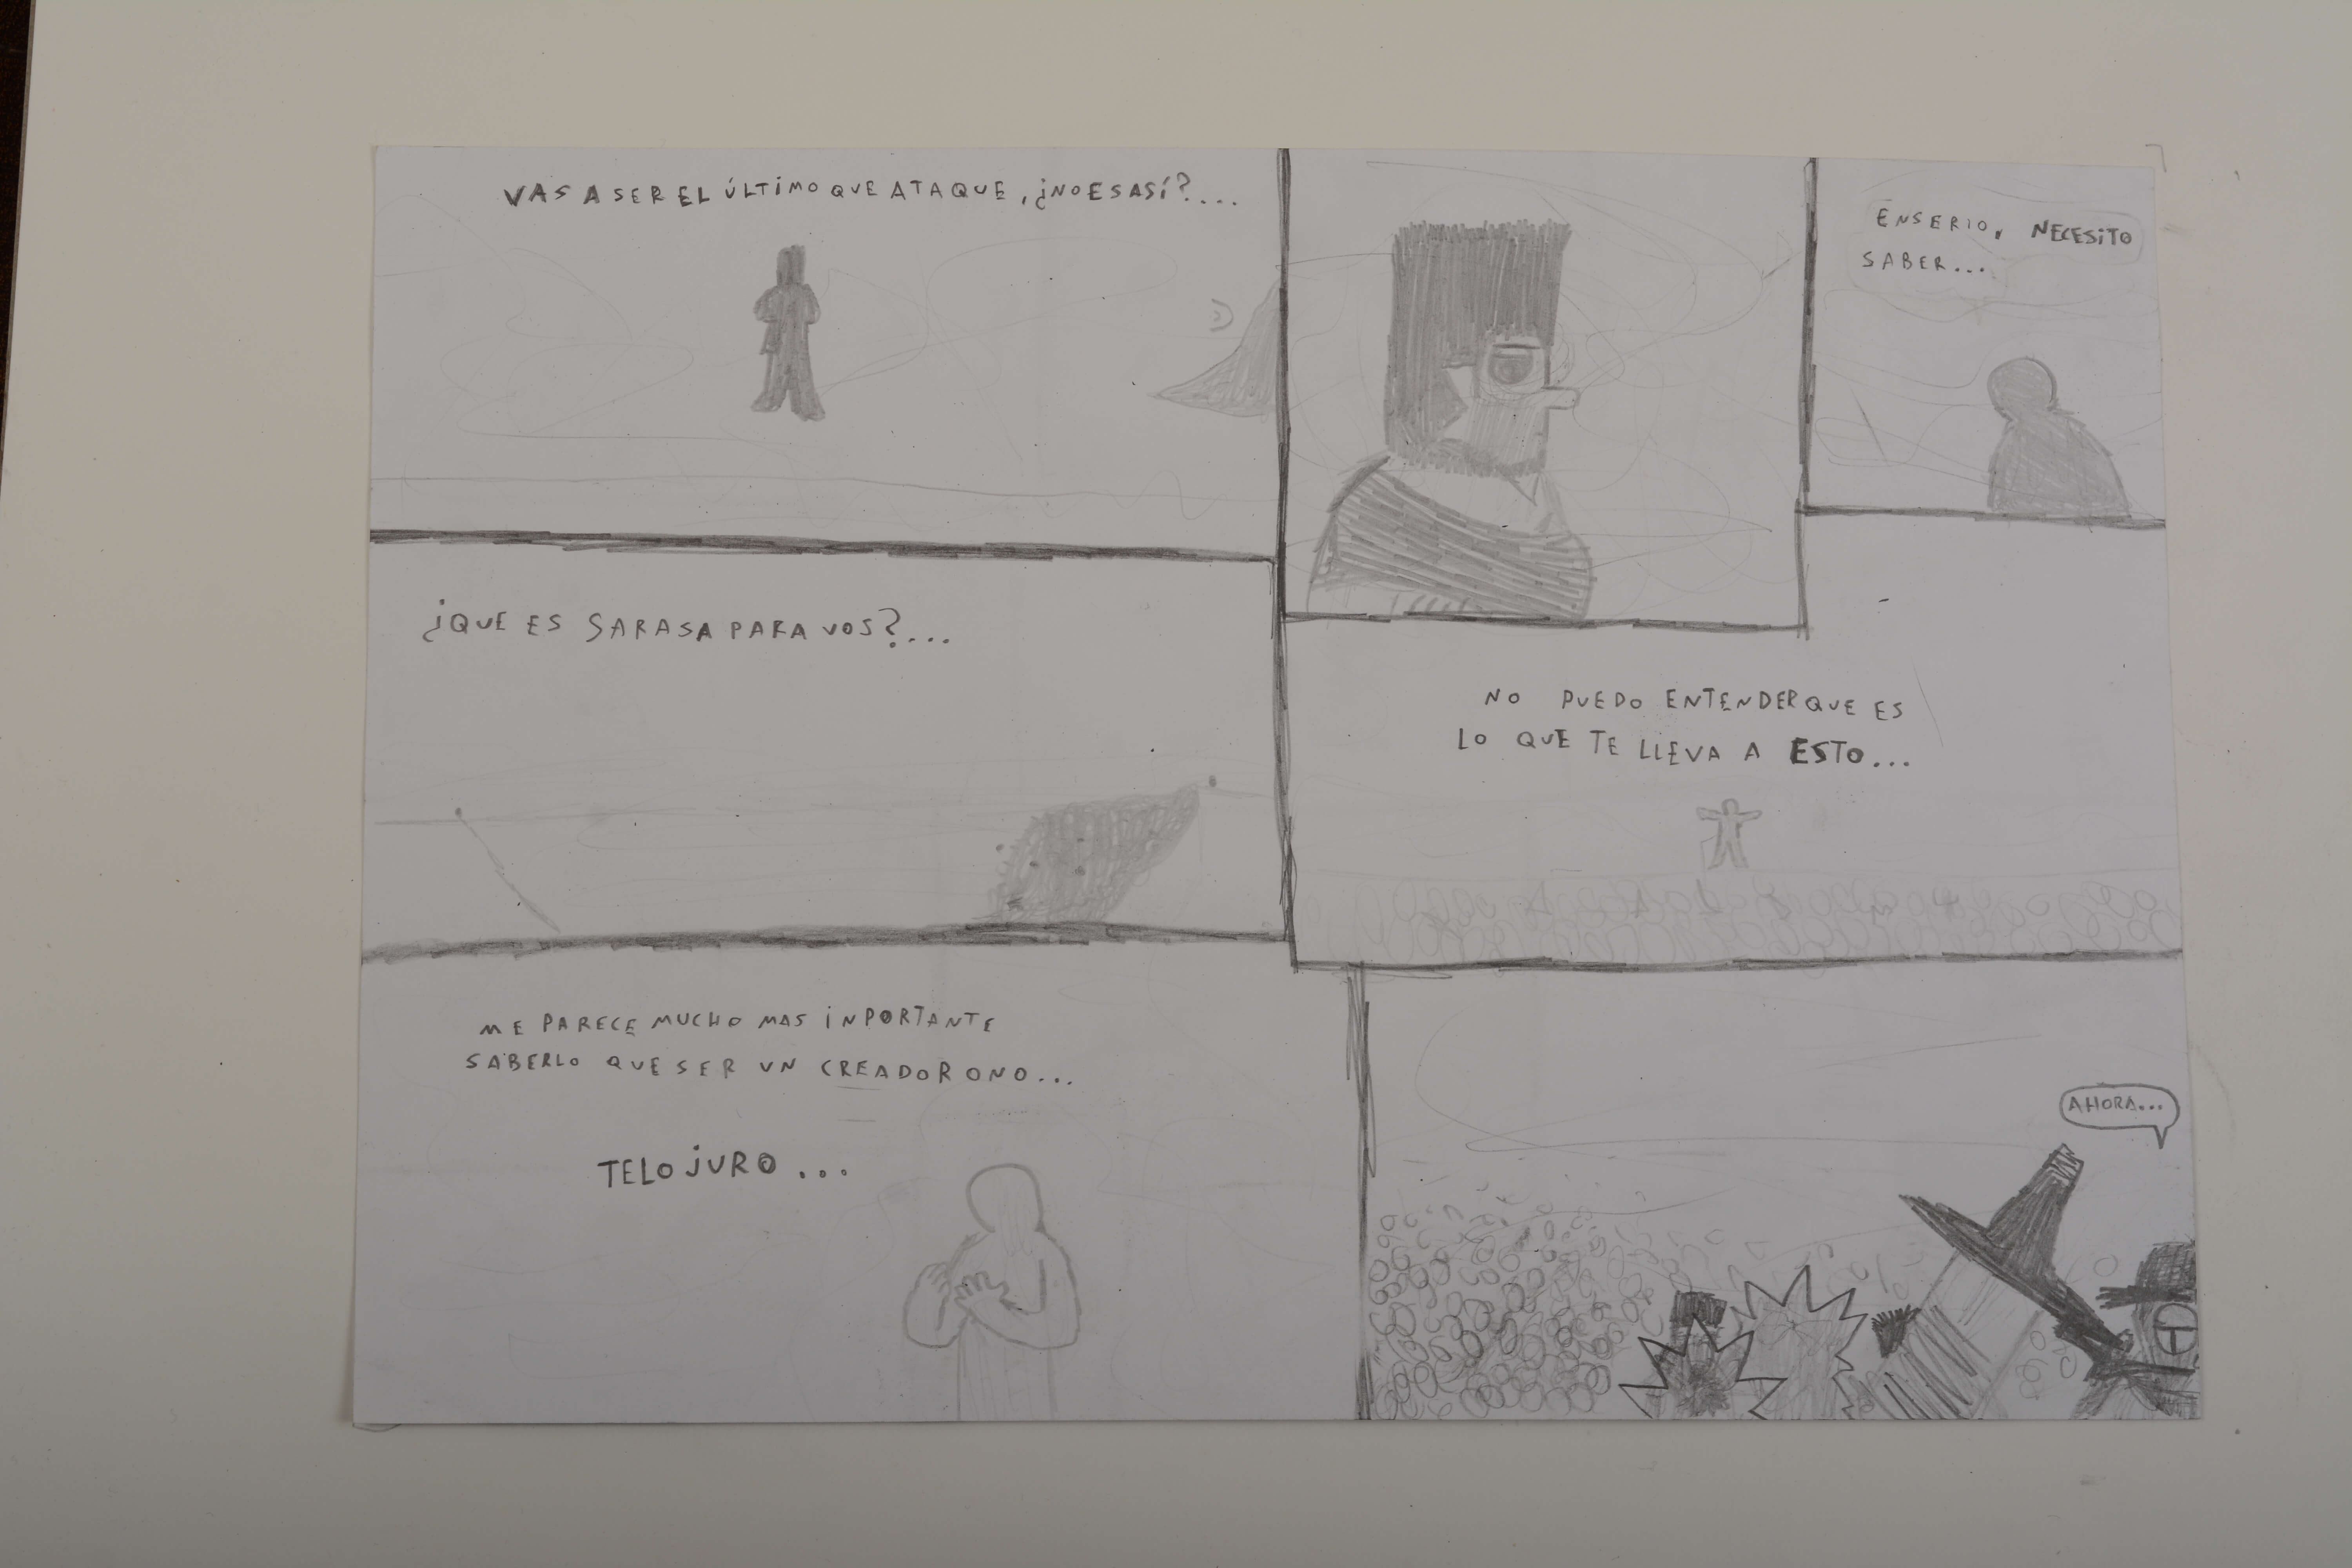 VAS A SER EL ÚLTIMO QUE ATAQUE, ¿NO ES ASÍ?....
ENSERIO, NECESITO
SABER...
¿QUE ES SARASA PARA VOS?...
NO PUEDO ENTENDER QUE ES
LO QUE TE LLEVA A ESTO...
ME PARECE MUCHO MAS INPORTANTE
SABERLO QUE SER UN CREADOR O NO...
TE LO JURO...
AHORA...